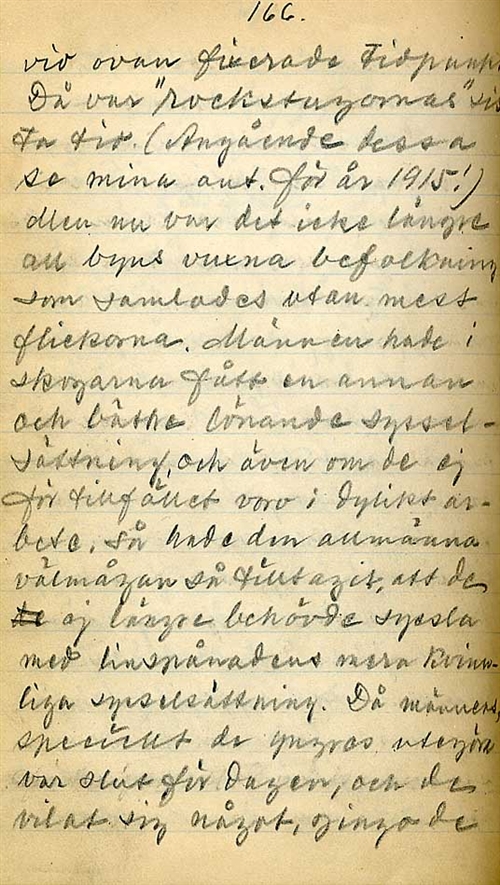 166.
vid ovan fixerade tidpunkt
Då var "rockstugornas" sis
ta tid. (Angående dessa
se mina ant. för år 1915!)
Men nu var det icke längre
all byns vuxna befolkning
som samlades utan mest
flickorna. Männen hade i
skogarna fått en annan
och bättre lönande syssel-
sättning, och även om de ej
för tillfället voro i dylikt ar-
bete, så hade den allmänna
välmågan så tilltagit, att de
ej längre behövde syssla
med linspånadens mera kvinn-
liga sysselsättning. Då männens,
speciellt de yngras utegöra
var slut för dagen, och de
vilat sig något, gingo de